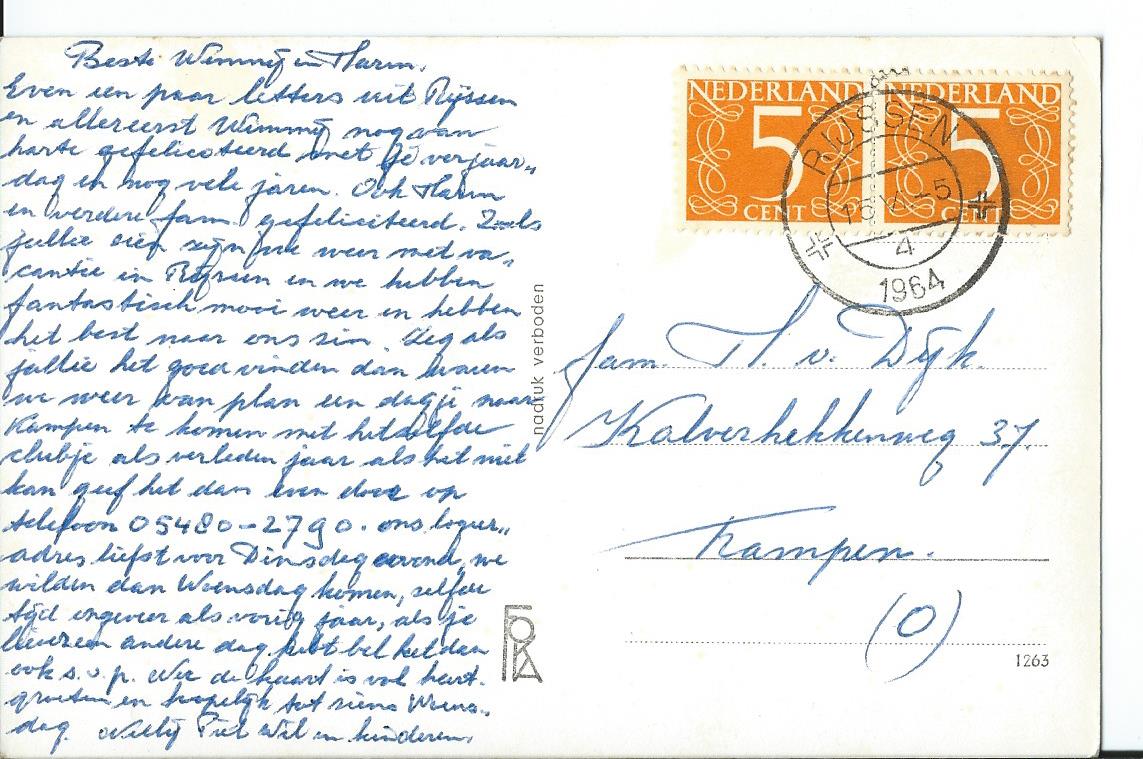 Beste Wimmy en Harm.
Even een paar letters uit Rijssen
en allereerst Wimmy nog van
harte gefeliciteerd met je verjaar„
dag en nog vele jaren. Ook Harm
en verdere fam. gefeliciteerd. Zoals
jullie zien zijn we weer met va„
cantie in Rijssen en we hebben
fantastisch mooi weer en hebben
het best naar ons zin. Zeg als
jullie het goed vinden dan waren
we weer van plan een dagje naar
Kampen te komen met hetzelfde
clubje als verleden jaar als het niet
kan geef het dan even door op
telefoon 05480-2790. ons logeer„
adres liefst voor Dinsdag avond, we
wilden dan Woensdag komen, zelfde
tijd ongeveer als vorig jaar, als je
liever een andere dag hebt bel het dan
ook s.v.p. de kaart is vol hart.
groeten en hopelijk tot ziens Woens„
dag. Willy Piet Wil en kinderen.
nadruk verboden
FOKA
NEDERLAND NEDERLAND
5 5
CENT CENT
RIJSSEN
4
1964
fam. H. v. Dijk.
Kalverhekkenweg 37.
Kampen.
(O)
1263